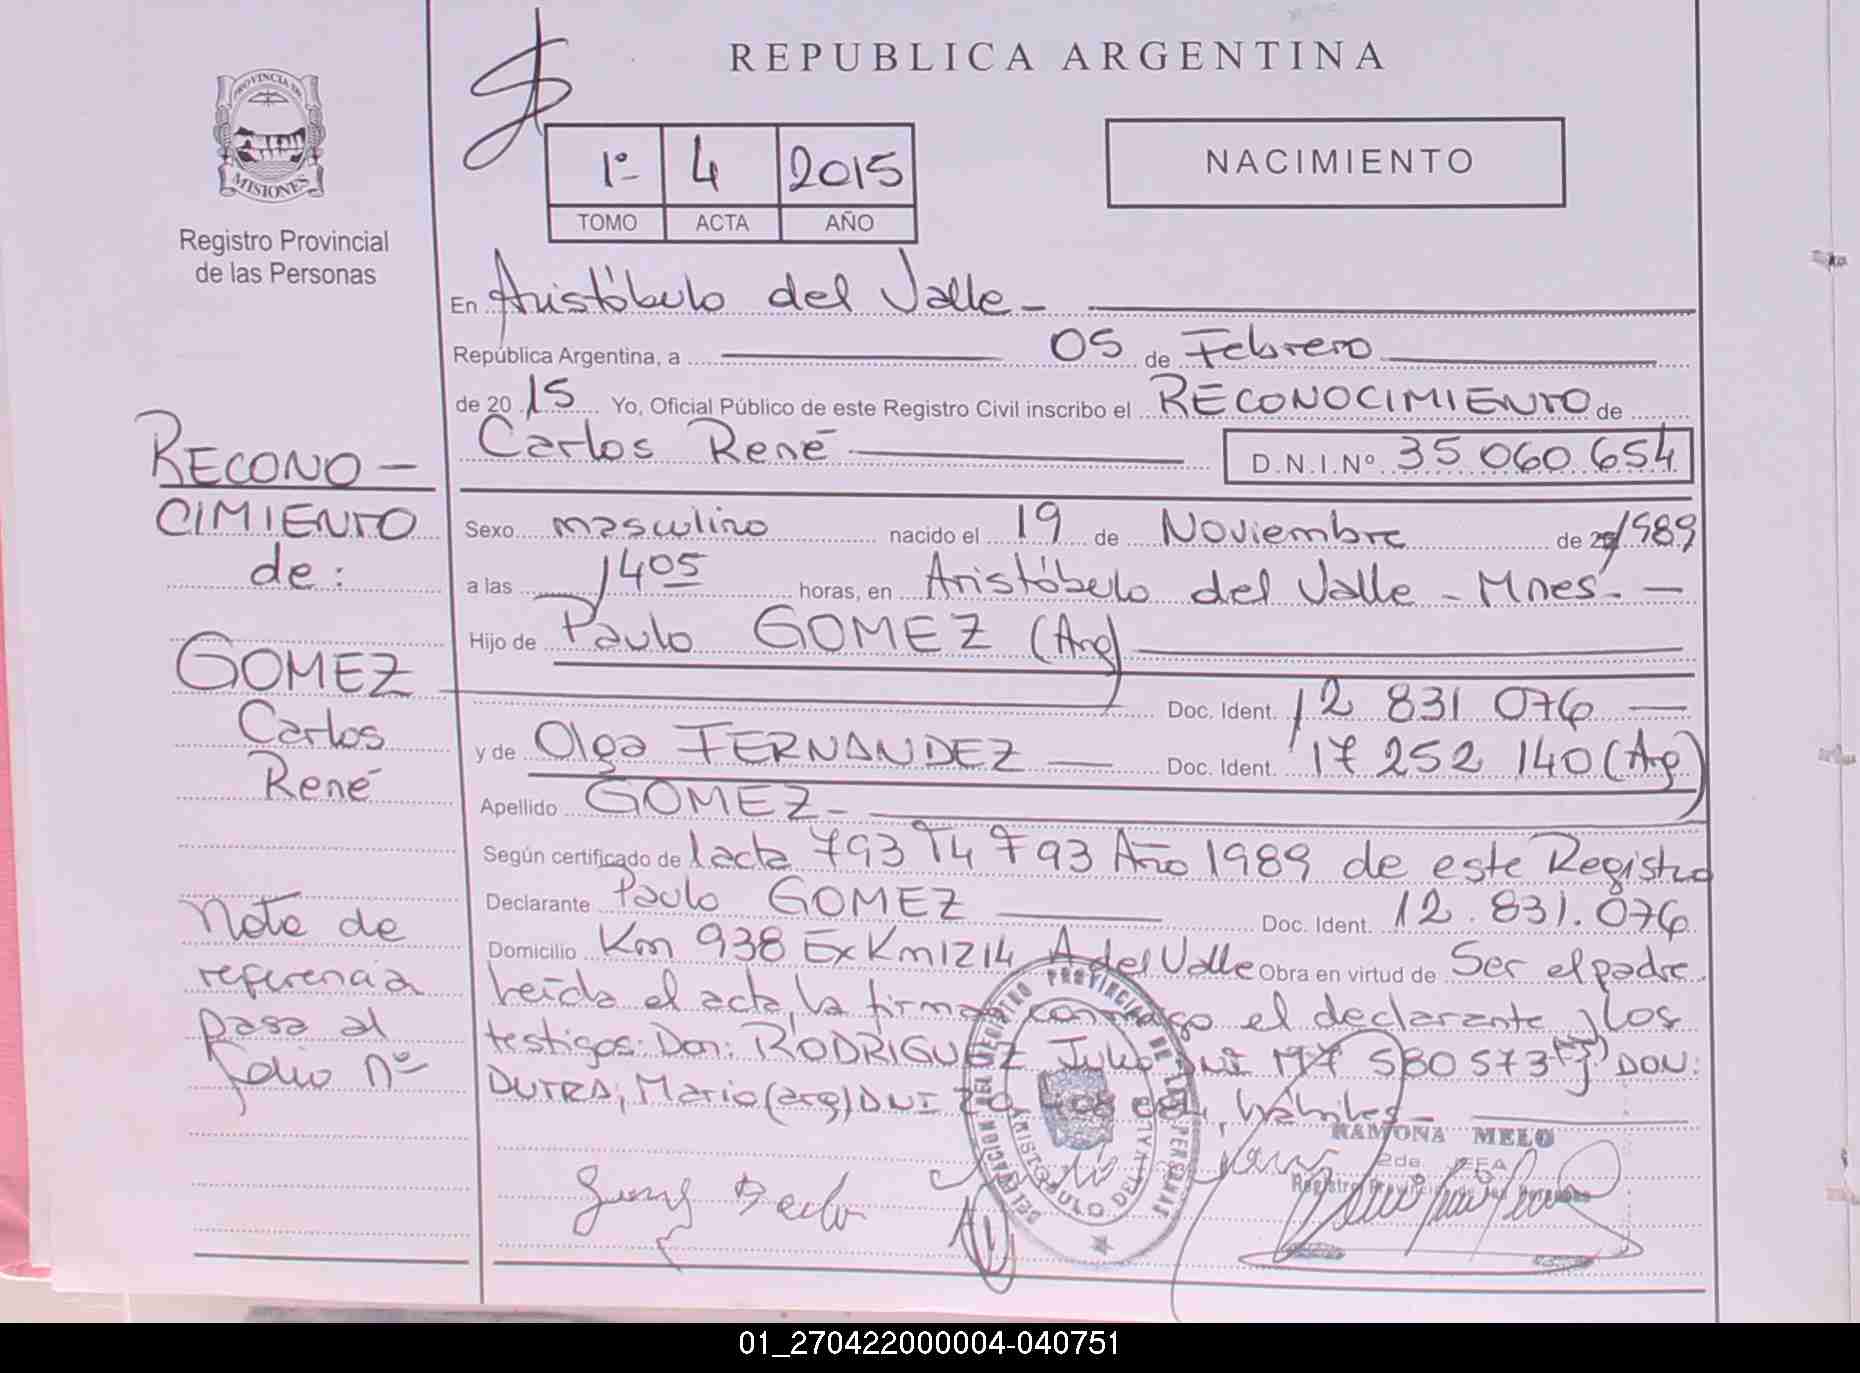 REPUBLICA ARGENTINA
PROVINCIA DE
MISIONES
Registro Provincial
de las Personas
1º 4 2015
TOMO ACTA AÑO
NACIMIENTO
En Aristóbulo del Valle -
República Argentina, a 05 de Febrero
de 20 15 Yo, Oficial Público de este Registro Civil inscribo el RECONOCIMIENTO de
Carlos René D.N.I.Nº 35 060 654
Sexo masculino nacido el 19 de Noviembre de 1989
a las 1405 horas, en Aristóbulo del Valle - Mnes. -
Hijo de Paulo GOMEZ (Arg)
Doc. Ident. 12 831 076
y de Olga FERNANDEZ Doc. Ident. 17 252 140 (Arg)
Apellido GOMEZ -
Según certificado de 1 acta 793 T4 F 93 Año 1989 de este Registro
Declarante Paulo GOMEZ Doc. Ident. 12.831.076
Domicilio Km 938 Ex Km 1214 A del Valle Obra en virtud de Ser el padre
Leída el acta, la firman conmigo el declarante y los
testigos: Don: RODRIGUEZ Julio DNI M7 580 573 DON:
DUTRA, Mario (arg) DNI hábiles -
RECONO-
CIMIENTO
de:
GOMEZ
Carlos
René
Nota de
referencia
pasa al
folio Nº
DELEGACION DEL REGISTRO PROVINCIAL DE LAS PERSONAS
ARISTOBULO DEL VALLE
RAMONA MELO
2da. JEFA
Registro Provincial de las Personas
01_270422000004-040751